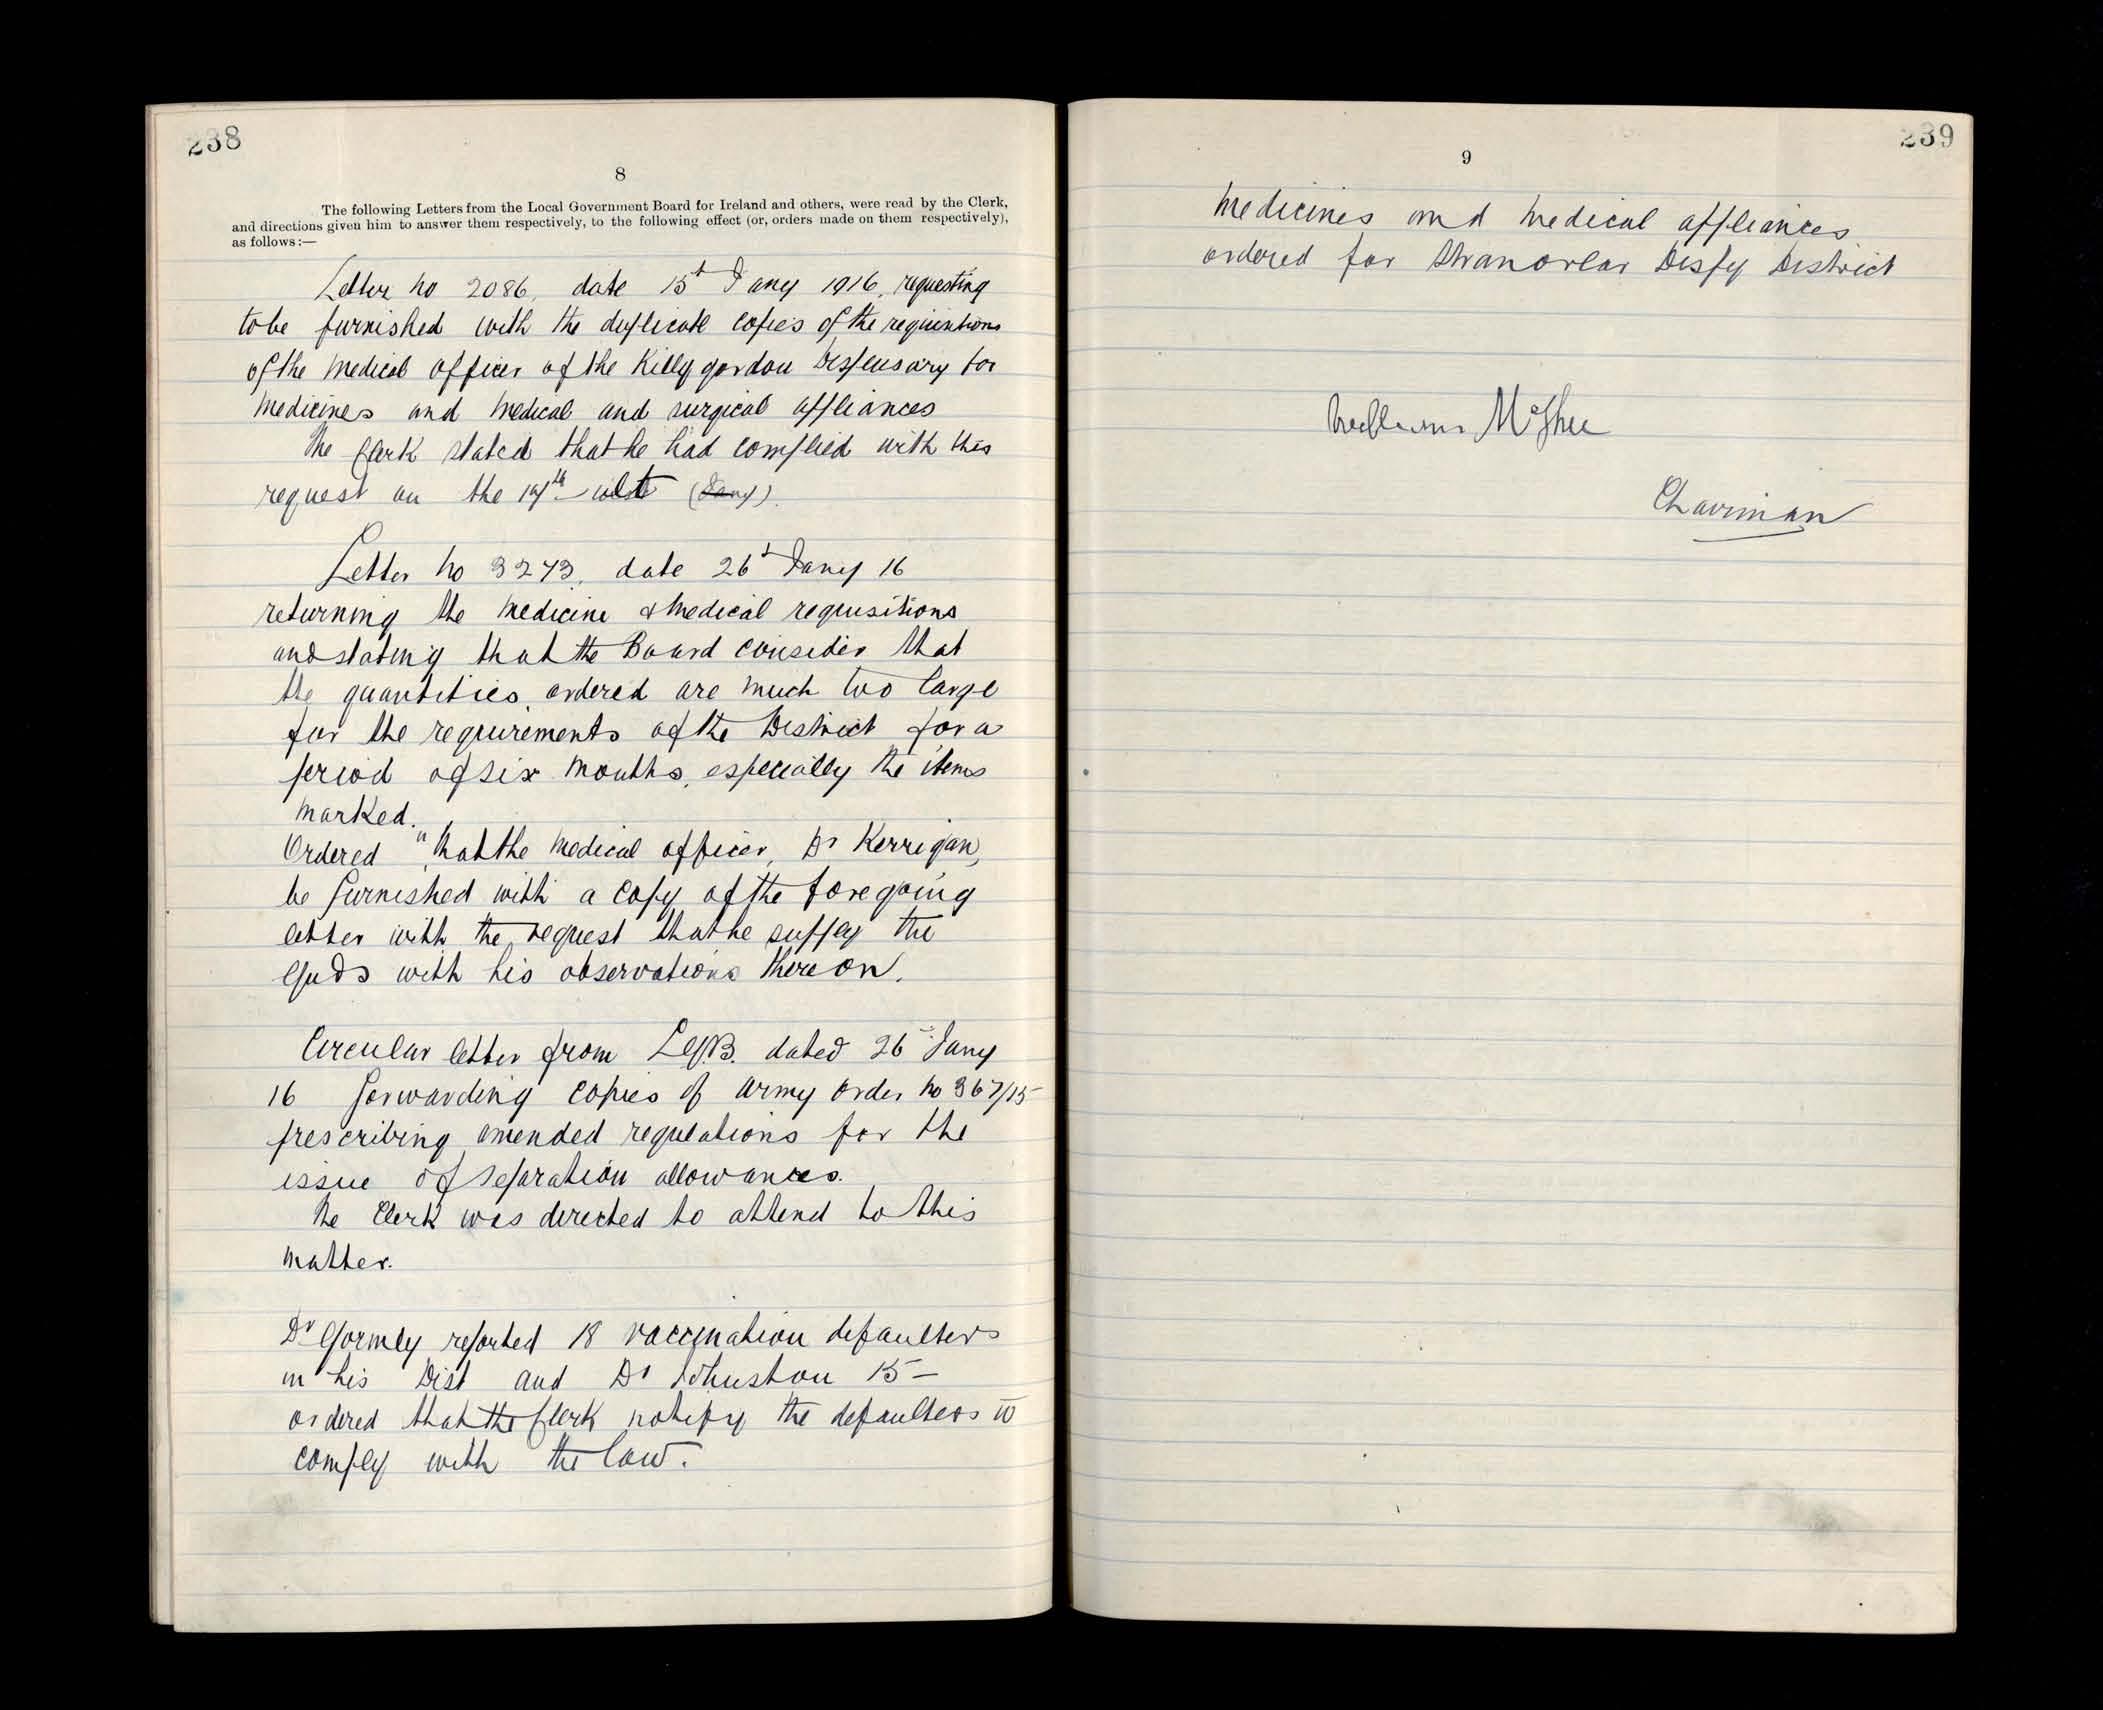 238
8
The following Letters from the Local Government Board for Ireland and others, were read by the Clerk,
and directions given him to answer them respectively, to the following effect (or, orders made on them respectively),
as follows:—
Letter no 2086, date 15th Jany 1916, requesting
to be furnished with the duplicate copies of the requisitions
of the Medical officer of the Killygordon Dispensary for
Medicines and Medical and surgical appliances
The Clerk stated that he had complied with this
request on the 19th ult (Jany).
Letter no 3273, date 26th Jany 16
returning the Medicine & Medical requisitions
and stating that the Board consider that
the quantities ordered are much too large
for the requirements of the District for a
period of six months, especially the items
marked.
Ordered "That the Medical officer, Dr Kerrigan,
be furnished with a copy of the foregoing
letter with the request that he supply the
Guds with his observations thereon.
Circular letter from L.G.B. dated 26 Jany
16 forwarding copies of Army order no 367/15
prescribing amended regulations for the
issue of separation allowances.
The Clerk was directed to attend to this
matter.
Dr Gormly reported 18 vaccination defaulters
in his Dist and Dr Johnston 15—
ordered that the Clerk notify the defaulters to
comply with the law.
239
9
Medicines and Medical appliances
ordered for Stranorlar Dispy District
William McGhee
Chairman